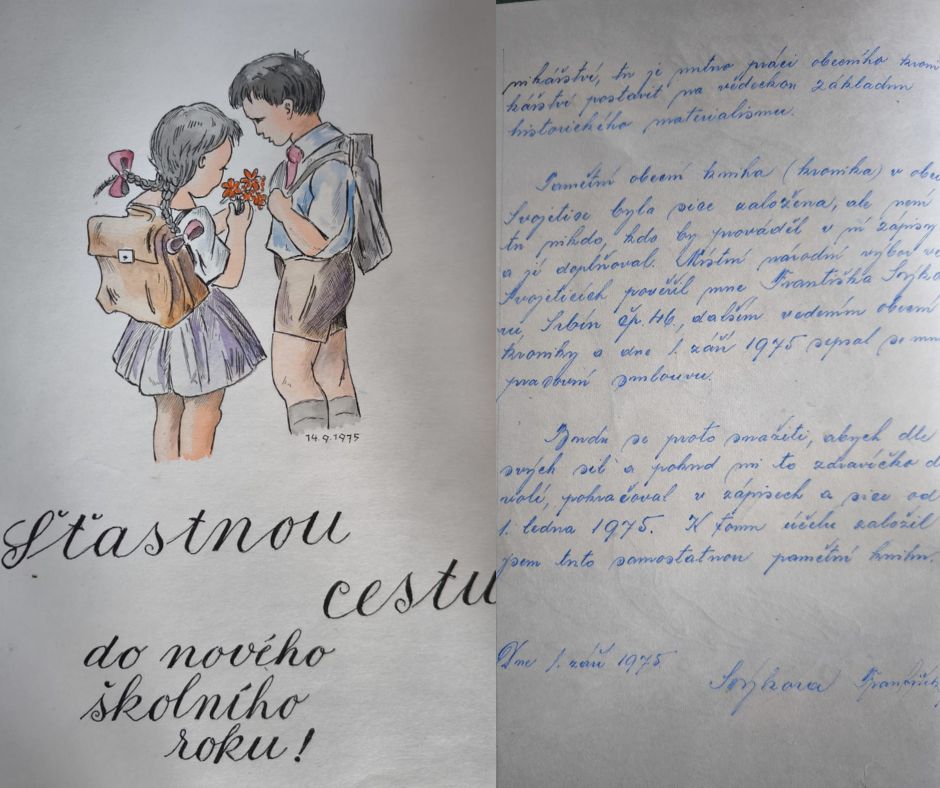 14.9.1975
Šťastnou
cestu
do nového
školního
roku!
nikářství, tu je nutno práci obecního kroni
kářství postavit na vědeckou základnu
historického materialismu.
Pamětní obecní kniha (kronika) v obci
Svojetice byla sice založena, ale není
tu nikdo, kdo by prováděl v ní zápisy
a jé doplňoval. Místní národní výbor ve
Svojeticích pověřil mne Františka
Srbín čp. 46., dalším vedením obecní
kroniky a dne 1. září 1975 sepsal se mn
pracovní smlouvu.
Budu se proto snažiti, abych dle
svých sil a pokud mi to zdravíčko d
volí, pokračoval v zápisech a sice od
1. ledna 1975. K tomu účelu založil
jsem tuto samostatnou pamětní knihu.
Dne 1. září 1975